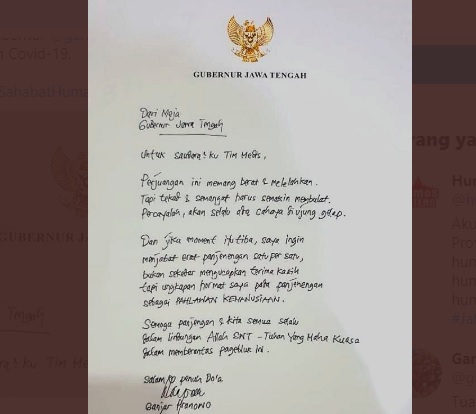 GUBERNUR JAWA TENGAH
Dari Meja
Gubernur Jawa Tengah
Untuk Saudara2 ku Tim Medis,
Perjuangan ini memang berat & melelahkan.
Tapi tekad & semangat harus semakin membulat.
Percayalah, akan selalu ada cahaya di ujung gelap.
Dan jika moment itu tiba, saya ingin
menjabat erat panjenengan satu per satu,
bukan sekedar mengucapkan terima kasih
tapi ungkapan hormat saya pada panjenengan
sebagai PAHLAWAN KEMANUSIAAN.
Semoga panjengan & kita semua selalu
dalam lindungan Allah SWT - Tuhan Yang Maha Kuasa
dalam memberantas pagebluk ini.
Salam penuh Do'a
Ganjar Pranowo
n Covid-19.
SahabatHum
GUBERNUR JA
ku Tim He
rang ya
Hum
Aku
Pro
hum
hum
Gan
Tua